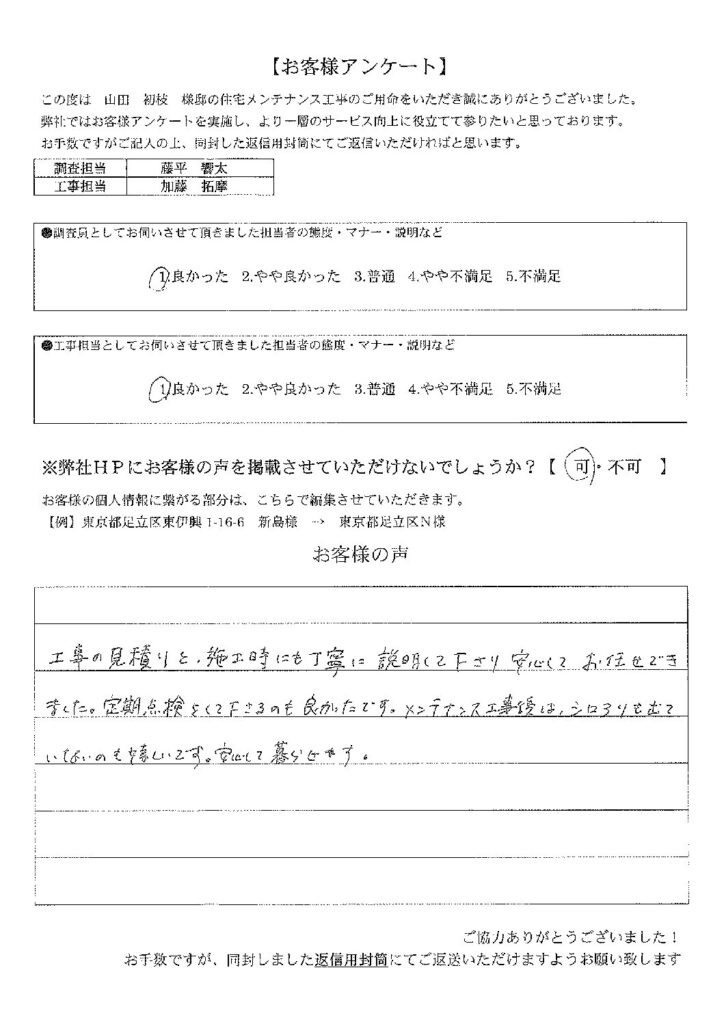 【お客様アンケート】
この度は　山田　初枝　様邸の住宅メンテナンス工事のご用命をいただき誠にありがとうございました。
弊社ではお客様アンケートを実施し、より一層のサービス向上に役立てて参りたいと思っております。
お手数ですがご記入の上、同封した返信用封筒にてご返信いただければと思います。
調査担当　藤平　響太
工事担当　加藤　拓摩
●調査員としてお伺いさせて頂きました担当者の態度・マナー・説明など
1.良かった　2.やや良かった　3.普通　4.やや不満足　5.不満足
●工事担当としてお伺いさせて頂きました担当者の態度・マナー・説明など
1.良かった　2.やや良かった　3.普通　4.やや不満足　5.不満足
※弊社ＨＰにお客様の声を掲載させていただけないでしょうか？【　可・不可　】
お客様の個人情報に繋がる部分は、こちらで編集させていただきます。
【例】東京都足立区東伊興 1-16-6　新島様　→　東京都足立区Ｎ様
お客様の声
工事の見積りと、施工時にも丁寧に 説明して下さり 安心して お任せでき
ました。定期点検をして下さるのも良かったです。メンテナンス工事後は、シロアリも出て
いないのも嬉しいです。安心して暮らせます。
ご協力ありがとうございました！
お手数ですが、同封しました返信用封筒にてご返送いただけますようお願い致します